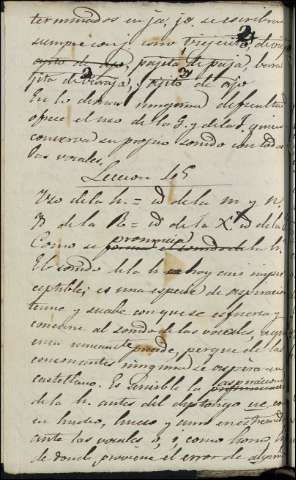 terminados en ja, jo, se escriben
siempre con j como viejecito, de vie
ajito de ajo, pajita de paja, bara
jita de baraja, ajito de ajo
En lo demas ninguna dificultad
ofrece el uso de la J. y de la f, quien
conserva su propio sonido con todas
las vocales.
Leccion 45
Uso de la h. = id de la m y n,
de la R = id de la X id de la
Como se pronuncia la h.
El sonido de la h es hoy casi imper
ceptible; es una especie de aspiracion
tenue y suave con que se esfuerza y
comunica al sonido de las vocales
puede, porque de las
consonantes ninguna se aspira en
castellano. Es sensible la aspiracion
de la h. antes del diptongo ue, co
en huevo, hueco y aun
ante las vocales o, o, como
de donde proviene el error de algun